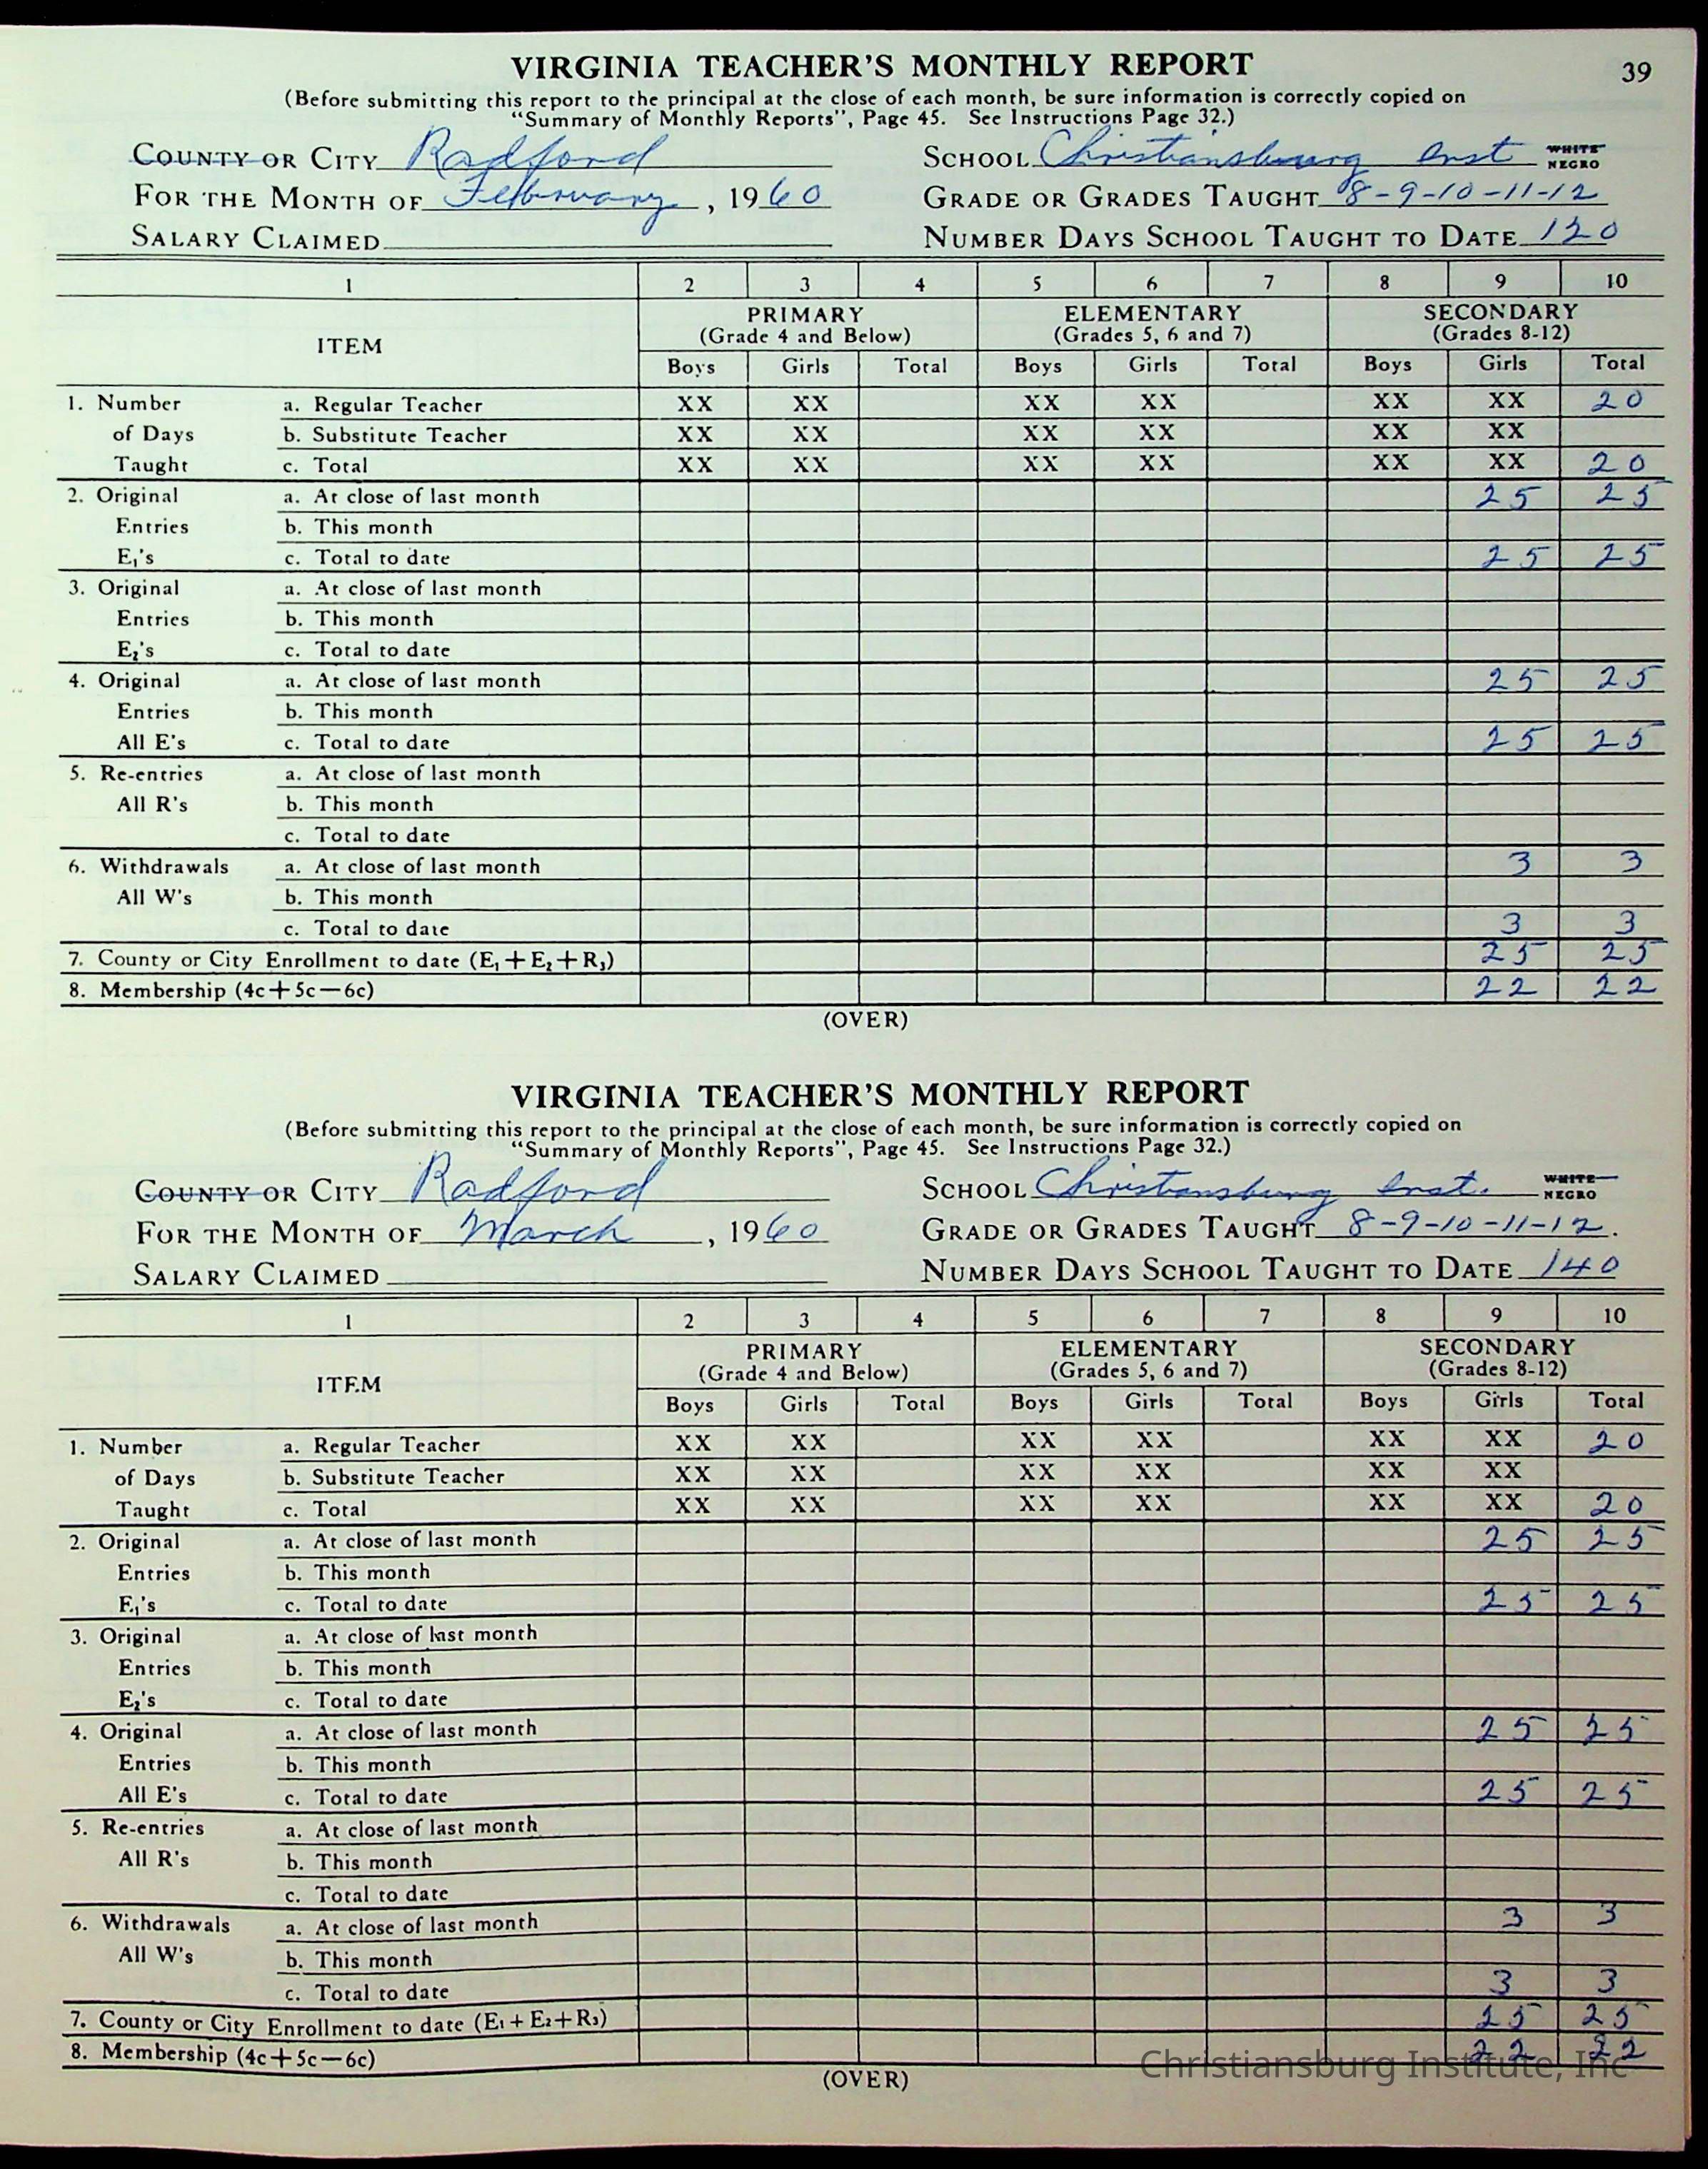 39
VIRGINIA TEACHER'S MONTHLY REPORT
(Before submitting this report to the principal at the close of each month, be sure information is correctly copied on
"Summary of Monthly Reports", Page 45. See Instructions Page 32.)
COUNTY OR CITY Radford SCHOOL Christiansburg Inst WHITE NEGRO
FOR THE MONTH OF February, 1960 GRADE OR GRADES TAUGHT 8-9-10-11-12
SALARY CLAIMED NUMBER DAYS SCHOOL TAUGHT TO DATE 120
1 2 3 4 5 6 7 8 9 10
ITEM PRIMARY ELEMENTARY SECONDARY
(Grade 4 and Below) (Grades 5, 6 and 7) (Grades 8-12)
Boys Girls Total Boys Girls Total Boys Girls Total
1. Number a. Regular Teacher XX XX XX XX XX XX 20
of Days b. Substitute Teacher XX XX XX XX XX XX
Taught c. Total XX XX XX XX XX XX 20
2. Original a. At close of last month 25 25
Entries b. This month
E1's c. Total to date 25 25
3. Original a. At close of last month
Entries b. This month
E2's c. Total to date
4. Original a. At close of last month 25 25
Entries b. This month
All E's c. Total to date 25 25
5. Re-entries a. At close of last month
All R's b. This month
c. Total to date
6. Withdrawals a. At close of last month 3 3
All W's b. This month
c. Total to date 3 3
7. County or City Enrollment to date (E1+E2+R3) 25 25
8. Membership (4c+5c−6c) 22 22
(OVER)
VIRGINIA TEACHER'S MONTHLY REPORT
(Before submitting this report to the principal at the close of each month, be sure information is correctly copied on
"Summary of Monthly Reports", Page 45. See Instructions Page 32.)
COUNTY OR CITY Radford SCHOOL Christiansburg Inst. WHITE NEGRO
FOR THE MONTH OF March, 1960 GRADE OR GRADES TAUGHT 8-9-10-11-12.
SALARY CLAIMED NUMBER DAYS SCHOOL TAUGHT TO DATE 140
1 2 3 4 5 6 7 8 9 10
ITEM PRIMARY ELEMENTARY SECONDARY
(Grade 4 and Below) (Grades 5, 6 and 7) (Grades 8-12)
Boys Girls Total Boys Girls Total Boys Girls Total
1. Number a. Regular Teacher XX XX XX XX XX XX 20
of Days b. Substitute Teacher XX XX XX XX XX XX
Taught c. Total XX XX XX XX XX XX 20
2. Original a. At close of last month 25 25
Entries b. This month
E1's c. Total to date 25 25
3. Original a. At close of last month
Entries b. This month
E2's c. Total to date
4. Original a. At close of last month 25 25
Entries b. This month
All E's c. Total to date 25 25
5. Re-entries a. At close of last month
All R's b. This month
c. Total to date
6. Withdrawals a. At close of last month 3 3
All W's b. This month
c. Total to date 3 3
7. County or City Enrollment to date (E1+E2+R3) 25 25
8. Membership (4c+5c−6c) 22 22
(OVER)
Christiansburg Institute, Inc